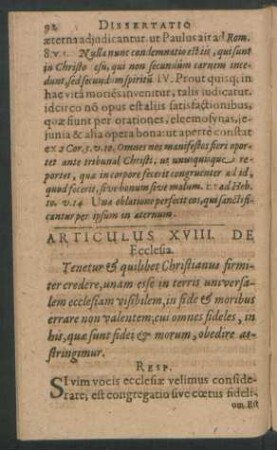 92 DISSERTATIO
æterna adjudicantur. ut Paulus ait ad Rom.
8. v. 1. Nulla nunc condemnatio est iis, qui sunt
in Christo esu, qui non secundùm carnem ince-
dunt, sed secundùm spiritū IV. Prout quisq; in
hac vitâ moriēs inventur, talis iudicatur.
idcirco nō opus est aliis satisfactionibus,
quæ sunt per orationes, eleemosynas, je-
junia & alia opera bona: ut apertè constat
ex 2 Cor. 5. v. 10. Omnes nos manifestos fieri opor-
tet ante tribunal Christi, ut unusquisque re-
portet, quæ in corpore fecerit congruenter ad id,
quod fecerit, sive bonum sive malum. It. ad Heb.
10. v. 14 Una oblatione perfecit eos, qui sanctifi-
cantur per ipsum in æternum.
ARTICULUS XVIII. DE
Ecclesia.
Tenetur & quilibet Christianus firmi-
ter credere, unam esse in terris universa-
lem ecclesiam visibilem, in fide & moribus
errare non valentem, cui omnes fideles, in
his, quæ sunt fidei & morum, obedire ad-
stringimur.
RESP.
SI vim vocis ecclesiæ velimus conside-
rare, est congregatio sive cœtus fideli-
um. Est